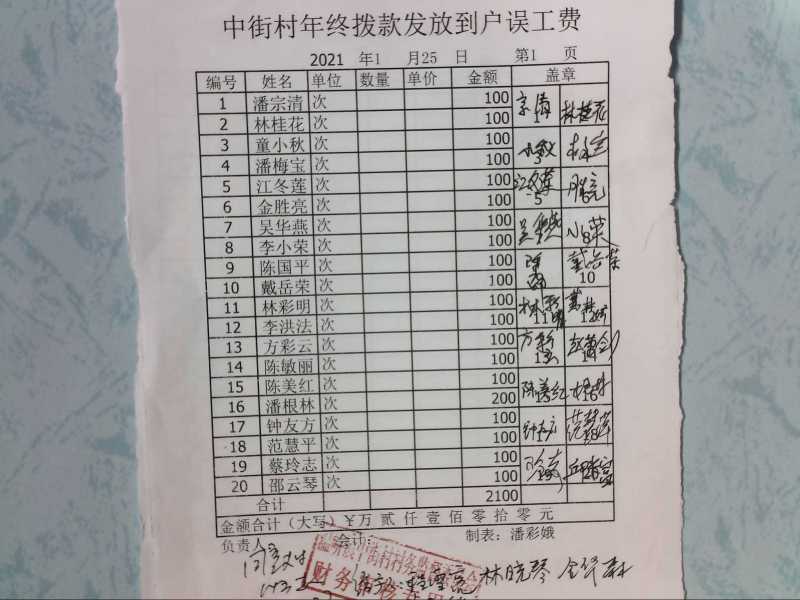 中街村年终拨款发放到户误工费
2021 年1 月25 日 第1 页
编号 姓名 单位 数量 单价 金额 盖章
1 潘宗清 次 100 宗清 林桂花
2 林桂花 次 100
3 童小秋 次 100 小秋
4 潘梅宝 次 100
5 江冬莲 次 100 江冬莲 胜亮
6 金胜亮 次 100
7 吴华燕 次 100 吴华燕 小荣
8 李小荣 次 100
9 陈国平 次 100 戴岳荣
10 戴岳荣 次 100 10
11 林彩明 次 100 林彩明
12 李洪法 次 100 11
13 方彩云 次 100 方彩云
14 陈敏丽 次 100
15 陈美红 次 100 陈美红
16 潘根林 次 200
17 钟友方 次 100 钟友方 范慧萍
18 范慧平 次 100
19 蔡玲志 次 100
20 邵云琴 次 100
合计 2100
金额合计（大写）￥万 贰 仟 壹 佰 零 拾 零 元
负责人 会计： 制表：潘彩娥
林晓琴